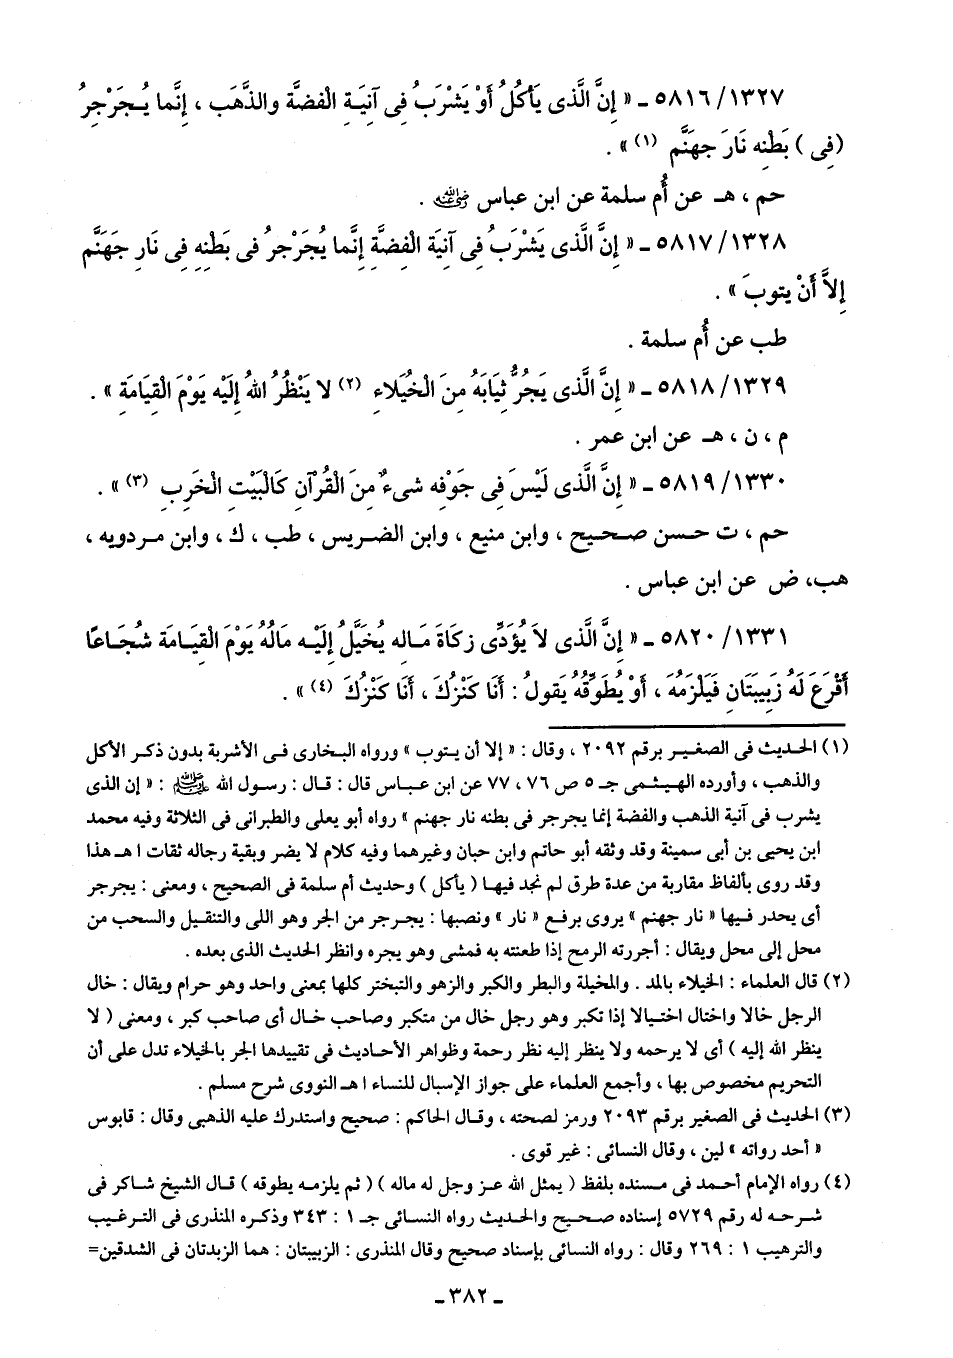 ٥٨١٦/١٣٢٧ ـ « إِنَّ الَّذى يَأكُلُ أَوْ يَشْرَبُ فِى آنيَـةِ الْفضَّة والذَّهَب ، إِنَّما يُـجَرْجِرُ
(فِى ) بَطْنِه نَارَ جهَنَّم (١) » .
حم ، هـ عن أُم سلمة عن ابن عباس رضي الله عنه .
٥٨١٧/١٣٢٨ ـ « إِنَّ الَّذى يَشْرَبُ فِى آنيَة الْفِضَّةِ إِنَّما يُجَرْجرُ فى بَطْنِهِ فِى نَارِ جَهَنَّم
إِلاَّ أَنْ يتوبَ » .
طب عن أُم سلمة .
٥٨١٨/١٣٢٩ ـ « إِنَّ الَّذى يَجُرُّ ثيَابَهُ مِنَ الْخُيَلاءِ (٢) لا يَنْظُرُ اللهُ إِلَيْهِ يَوْمَ الْقِيَامَةِ » .
م ، ن ، هـ عن ابن عمر .
٥٨١٩/١٣٣٠ ـ « إِنَّ الَّذى لَيْسَ فِى جَوْفِه شىءٌ مِنَ الْقُرْآنِ كَالْبَيْتِ الْخَرِبِ (٣) » .
حم ، ت حسن صـحيح ، وابن منيع ، وابن الضـريس ، طب ، ك ، وابن مـردويه ،
هب، ض عن ابن عباس .
٥٨٢٠/١٣٣١ ـ « إِنَّ الَّذى لاَ يُؤَدِّى زكَاةَ مَـاله يُخَيَّلُ إِلَيْـه مَالُهُ يَوْمَ الْقيَـامَة شُجَـاعًا
أَقْرَعَ لَهُ زَبِيبَتَانِ فَيَلْزَمُهُ ، أَوْ يُطَوِّقُهُ يَقولُ : أَنَا كَنْزُكَ ، أَنَا كَنْزُكَ (٤) » .
(١) الحديث فى الصغيـر برقم ٢٠٩٢ ، وقال : « إلا أن يـتوب » ورواه البخارى فـى الأشربة بدون ذكـر الأكل
والذهب ، وأورده الهـيـثمى جـ ٥ ص ٧٦ ، ٧٧ عن ابن عبـاس قال : قـال : رسـول الله ﷺ : « إن الذى
يشرب فى آنية الذهب والفضة إنما يجرجر فى بطنه نار جهنم » رواه أبو يعلى والطبرانى فى الثلاثة وفيه محمد
ابن يحيى بن أبى سمينة وقد وثقه أبو حاتم وابن حبان وغيرهما وفيه كلام لا يضر وبقية رجاله ثقات ا هـ هذا
وقد روى بألفاظ مقاربة من عدة طرق لم نجد فيهـا ( يأكل ) وحديث أم سلمة فى الصحيح ، ومعنى : يجرجر
أى يحدر فـيها « نار جهنم » يروى برفـع « نار » ونصبها : يجـرجر من الجر وهو اللى والتنقيـل والسحب من
محل إلى محل ويقال : أجررته الرمح إذا طعنته به فمشى وهو يجره وانظر الحديث الذى بعده .
(٢) قال العلماء : الخيلاء بالمد . والمخيلة والبطر والكبر والزهو والتبختر كلها بمعنى واحد وهو حرام ويقال : خال
الرجل خالا واختال اختـيالا إذا تكبر وهو رجل خال من متكبر وصاحب خـال أى صاحب كبر ، ومعنى ( لا
ينظر الله إليه ) أى لا يرحمه ولا ينظر إليه نظر رحمة وظواهر الأحاديث فى تقييدها الجر بالخيلاء تدل على أن
التحريم مخصوص بها ، وأجمع العلماء على جواز الإسبال للنساء ا هـ النووى شرح مسلم .
(٣) الحديث فى الصغير برقم ٢٠٩٣ ورمز لصحته ، وقـال الحاكم : صحيح واستدرك عليه الذهبى وقال : قابوس
« أحد رواته » لين ، وقال النسائى : غير قوى .
(٤) رواه الإمام أحـمد فى مسنده بلفظ ( يمثل الله عـز وجل له ماله ) ( ثم يلزمـه يطوقه ) قـال الشيخ شـاكر فى
شـرحـه له رقم ٥٧٢٩ إسناده صـحيح والحديث رواه النسـائى جـ ١ : ٣٤٣ وذكـره المنذرى فى التـرغيب
والترهيب ١ : ٢٦٩ وقال : رواه النسائى بإسناد صحيح وقال المنذرى : الزبيبتان : هما الزبدتان فى الشدقين=
ـ ٣٨٢ ـ